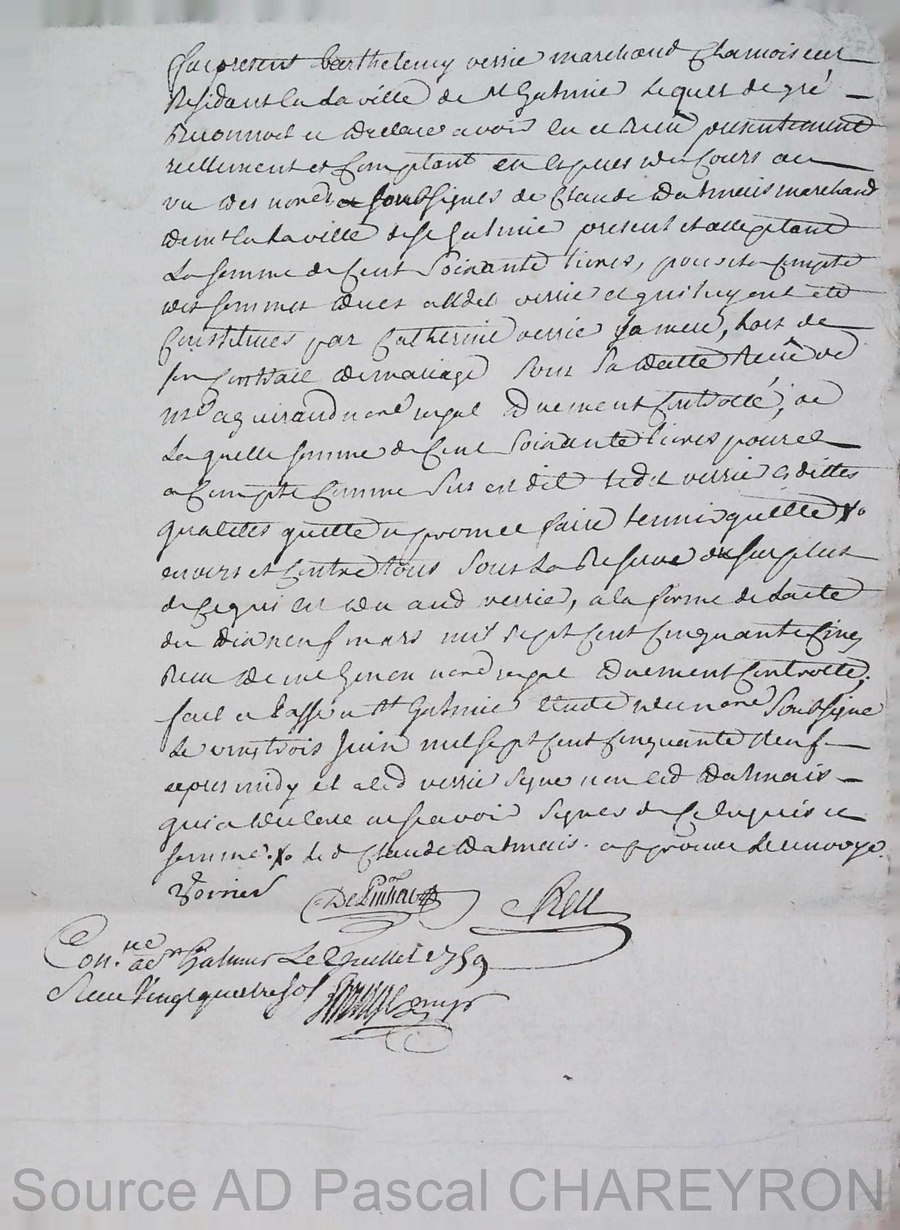 Fut present barthelemy verrie marchand Chamoiseur
Residant en La ville de St Galmie Lequel de gré
Reconnoit et declare avoir eu et Receu presentement
reellement et Comptant en especes du Cours au
vu des nores soubsignes de Claude Dalmais marchand
demt en La ville de St Galmie present et acceptant
La somme de Cent Soixante livres, pour et a Compte
des sommes dues audit verrie et qui luy ont été
Constitués par Catherine verrie sa mere, lors de
son Contrat de mariage sous sa datte Receu de
nore royal duement Controllé, de
La quelle somme de Cent Soixante livres pour et
a Compte Comme Sus est dit led verrie es dittes
qualites quitte et promet faire tenir quitte X
envers et Contre tous sous La Reserve du surplus
de Ce qui est du aud verrie, a la forme de Lacte
du dix neuf mars mil sept Cent Cinquante Cinq
Receu de me nore royal duement Controllé,
fait et passé a St Galmie etude du nore Soubsigné
Le vingt trois Juin mil sept Cent Cinquante Neuf
apres midy et a led verrie signé non led Dalmais
qui a declaré ne scavoir signer de Ce enquis et
sommé. X led Claude Dalmais. approuve Le renvoye.
Verrier
Con.lle a St Galmier Le 2 Juillet 1759
Receu vingt quatre sol
Source AD Pascal CHAREYRON